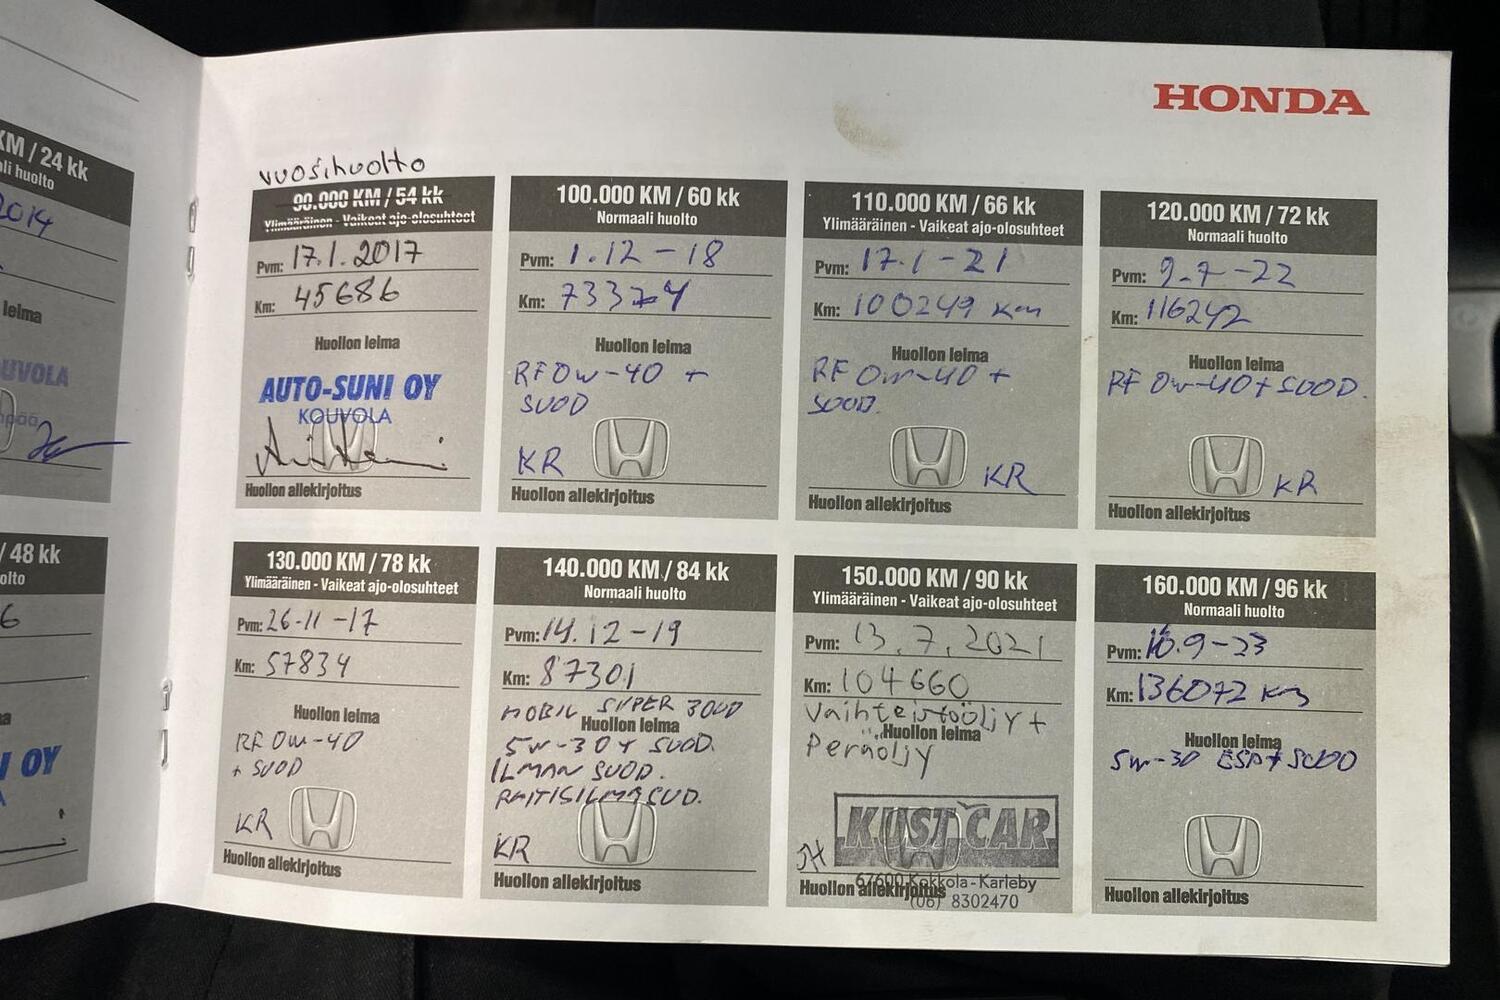 HONDA
KM / 24 kk
li huolto
2014
leima
OUVOLA
/ 48 kk
olto
6
I OY
vuosihuolto
90.000 KM / 54 kk
Ylimääräinen - Vaikeat ajo-olosuhteet
Pvm: 17.1.2017
Km: 45686
Huollon leima
AUTO-SUNI OY
KOUVOLA
Huollon allekirjoitus
100.000 KM / 60 kk
Normaali huolto
Pvm: 1.12-18
Km:
Huollon leima
RF 0W-40 +
SUOD
KR
Huollon allekirjoitus
110.000 KM / 66 kk
Ylimääräinen - Vaikeat ajo-olosuhteet
Pvm: 17.1-21
Km: 100249 km
Huollon leima
RF 0W-40 +
SUOD.
KR
Huollon allekirjoitus
120.000 KM / 72 kk
Normaali huolto
Pvm: 9.7-22
Km: 116242
Huollon leima
RF 0W-40 + SUOD.
KR
Huollon allekirjoitus
130.000 KM / 78 kk
Ylimääräinen - Vaikeat ajo-olosuhteet
Pvm: 26-11-17
Km: 57834
Huollon leima
RF 0W-40
+ SUOD
KR
Huollon allekirjoitus
140.000 KM / 84 kk
Normaali huolto
Pvm: 14.12-19
Km: 87301
MOBIL SUPER 3000
Huollon leima
5W-30 + SUOD.
ILMAN SUOD.
RAITISILMASUD.
KR
Huollon allekirjoitus
150.000 KM / 90 kk
Ylimääräinen - Vaikeat ajo-olosuhteet
Pvm: 13.7.2021
Km: 104660
Vaihteistoöljy +
Huollon leima
Peräöljy
KUST CAR
JH
67600 Kokkola - Karleby
Huollon allekirjoitus
(06) 8302470
160.000 KM / 96 kk
Normaali huolto
Pvm: 16.9-23
Km: 136072 km
Huollon leima
5W-30 ESP + SUOD
Huollon allekirjoitus